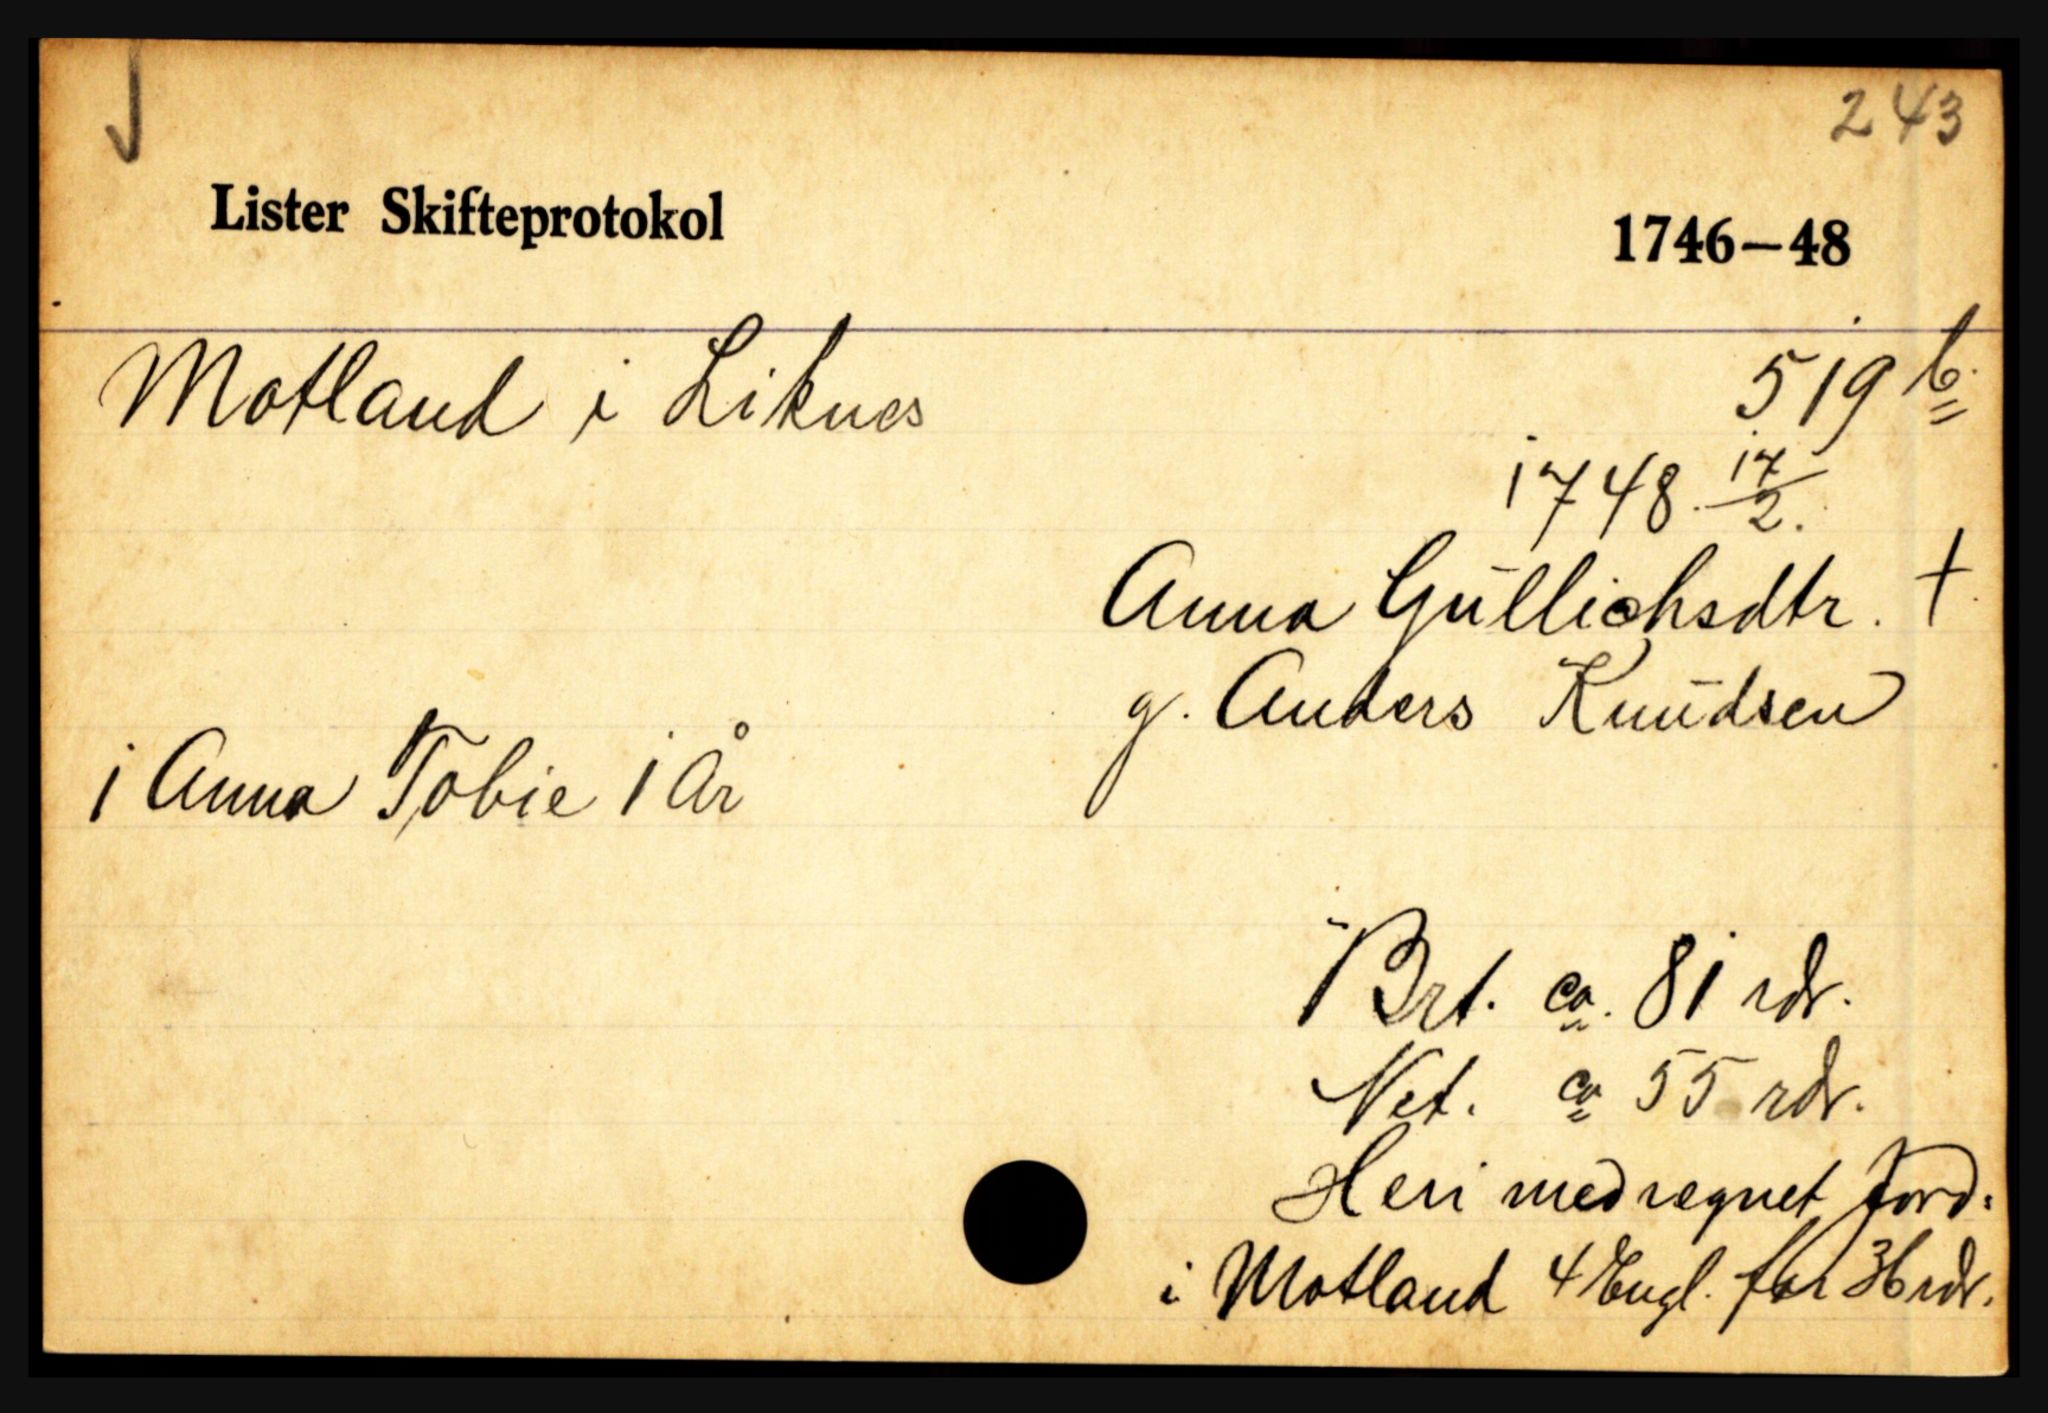 243
Lister Skifteprotokol 1746–48
Motland i Liknes 519 b.
1748. 17/2.
Anna Güllichsdtr. †
g. Anders Knudsen
1 Anna Tobie 1 år
Brt. ca. 81 rdr.
Net. ca 55 rdr.
Heri medregnet Jord:
i Motland 4 Engl. for 36 rdr.